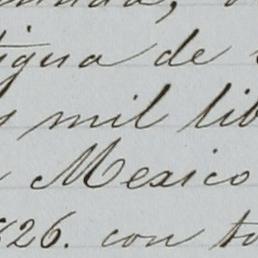 tigua de
mil lib
Mexico
826. con to